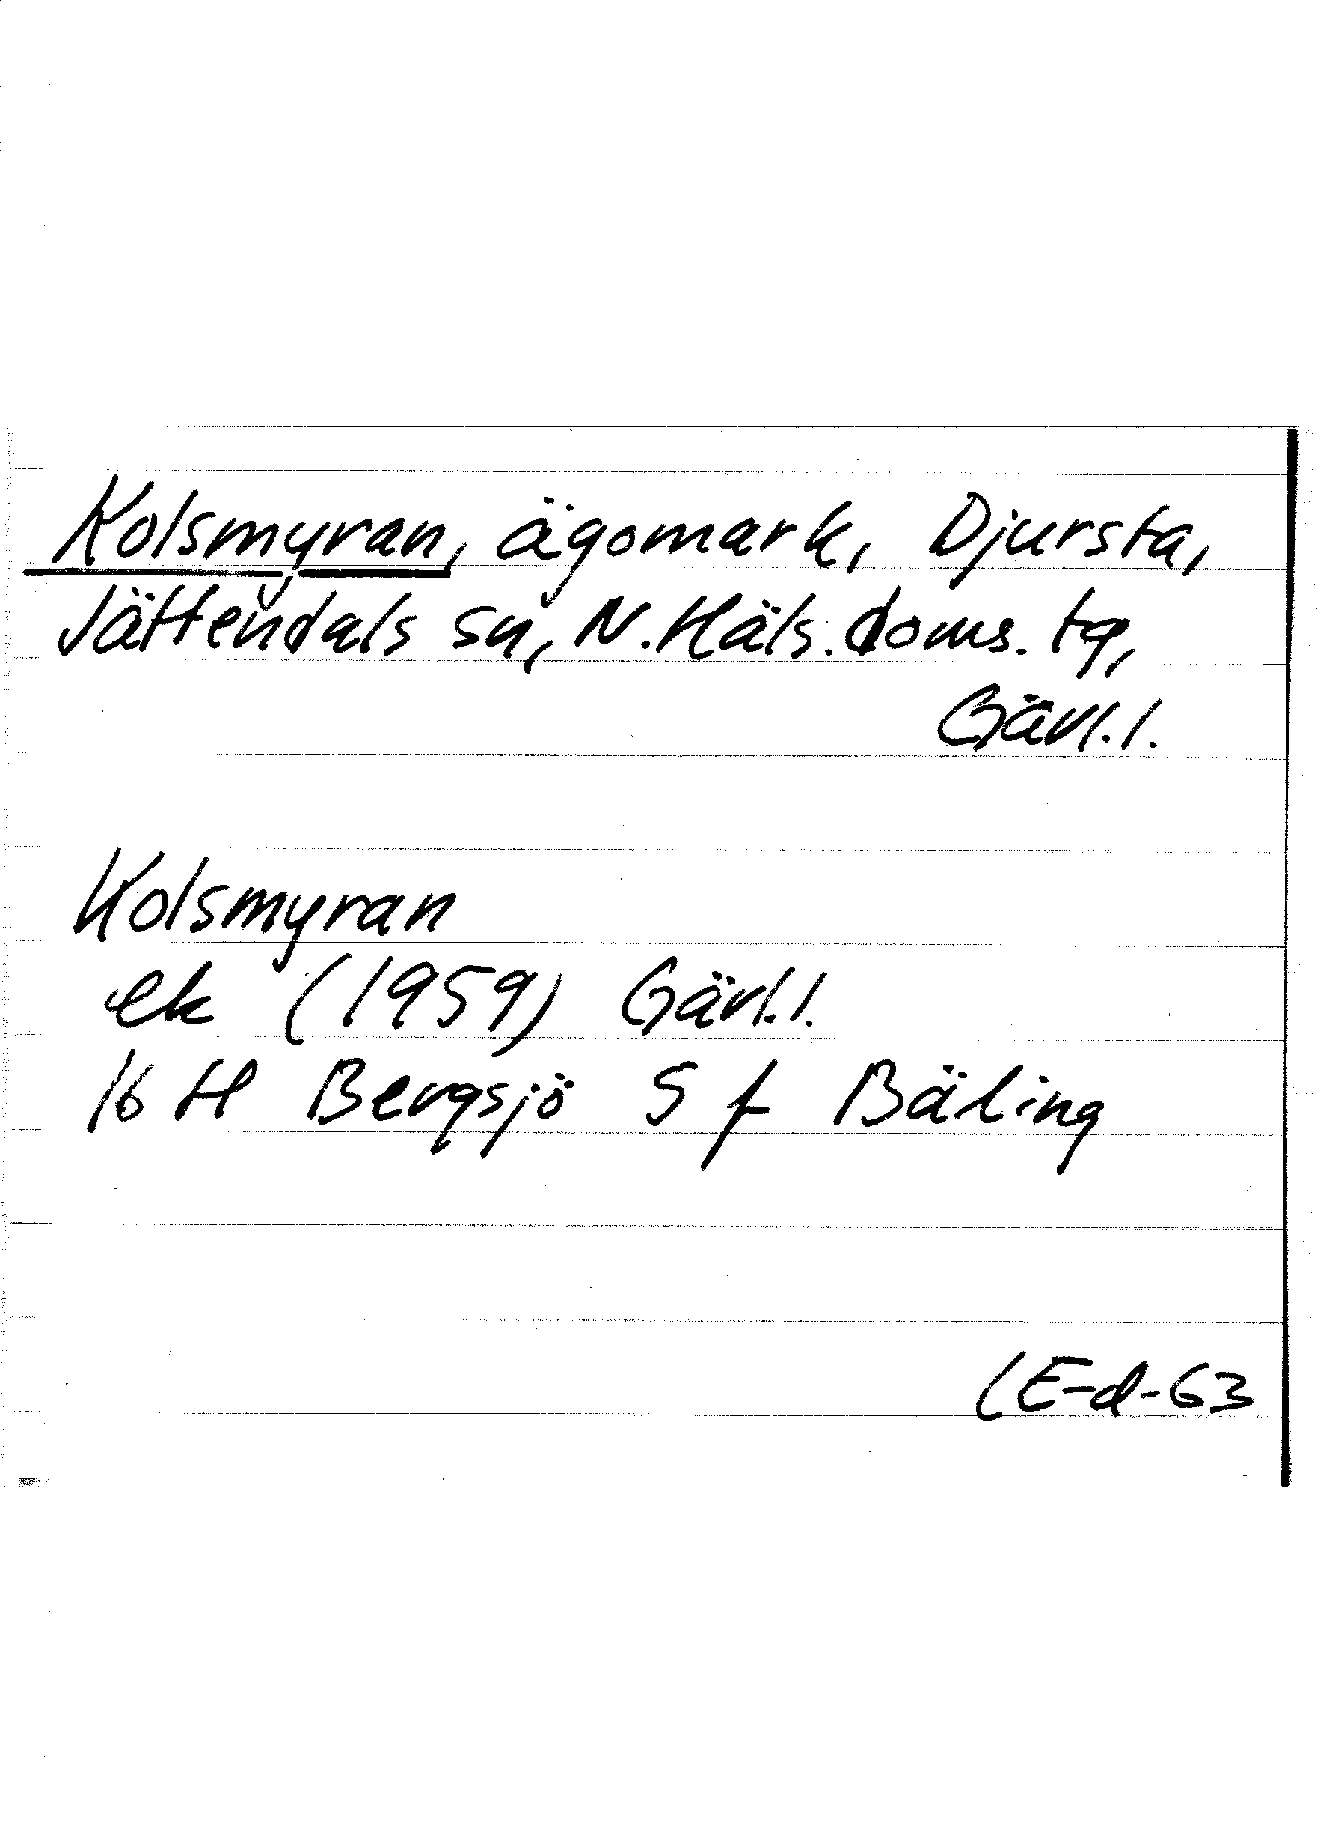 Kolsmyran, ägomark, Djursta,
Jättendals sn, N. Häls. doms. tg,
Gävl.l.
Kolsmyran
ek (1959) Gävl.l.
16 H Bergsjö S f Bäling
LE-d-63